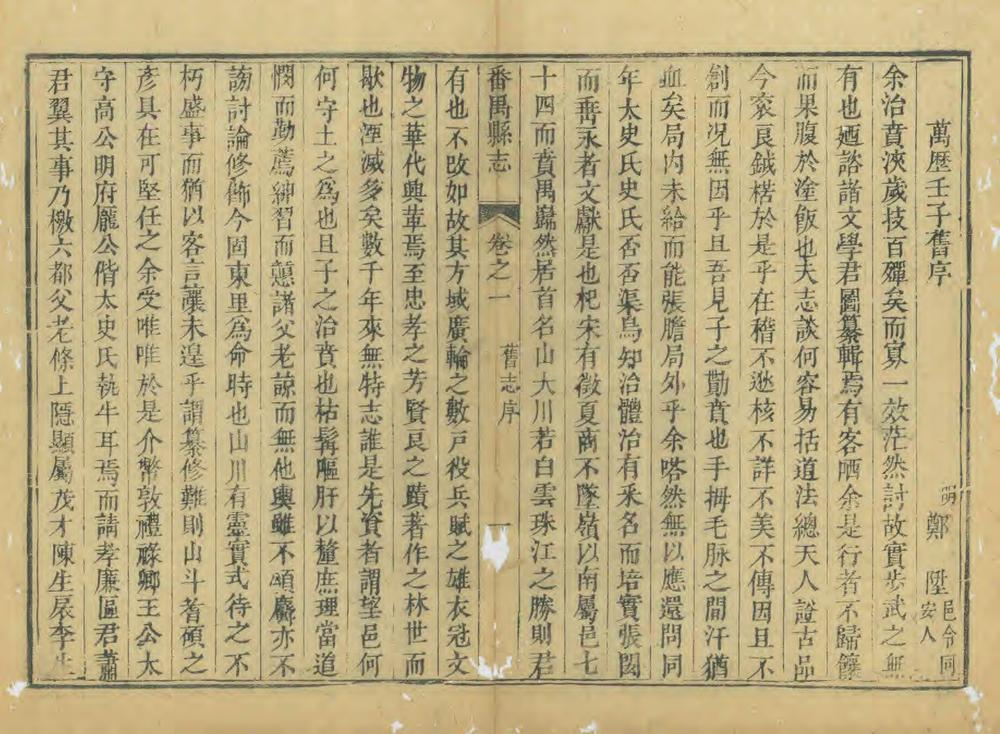 萬歷壬子舊序
明 鄭 陞 邑令同安人
余治賁浹歲技百殫矣而寡一效茫然討故實步武之無
有也廼諮諸文學君圖纂輯焉有客哂余是行者不歸饟
而果腹於塗飯也夫志談何容易括道法總天人證古品
今袞良鉞楛於是乎在稽不逖核不詳不美不傳因且不
創而况無因乎且吾見子之勩賁也手拇毛脉之間汗猶
血矣局内未給而能張膽局外乎余嗒然無以應還問同
年太史氏史氏否否渠烏知治體治有釆名而培實張閎
而耑永者文獻是也杞宋有徵夏商不墜嶺以南屬邑七
十四而賁禺巋然居首名山大川若白雲珠江之勝則君
番禺縣志 卷之一 舊志序 一
有也不改如故其方域廣輪之數戸役兵賦之雄衣冠文
物之華代興輩焉至忠孝之芳賢良之蹟著作之林世而
歇也湮滅多矣數千年來無特志誰是先資者謂望邑何
何守土之為也且子之治賁也枯髯嘔肝以釐庶理當道
憫而勤薦紳習而慭諸父老諒而無他輿雖不頌麛亦不
謗討論修飾今固東里為命時也山川有靈實式待之不
朽盛事而猶以客言讓未遑乎謂纂修難則山斗耆碩之
彥具在可堅任之余受唯唯於是介幣敦禮祿卿王公太
守高公明府龐公偕太史氏執牛耳焉而請孝廉區君蕭
君翼其事乃檄六都父老條上隱顯屬茂才陳生扆李生